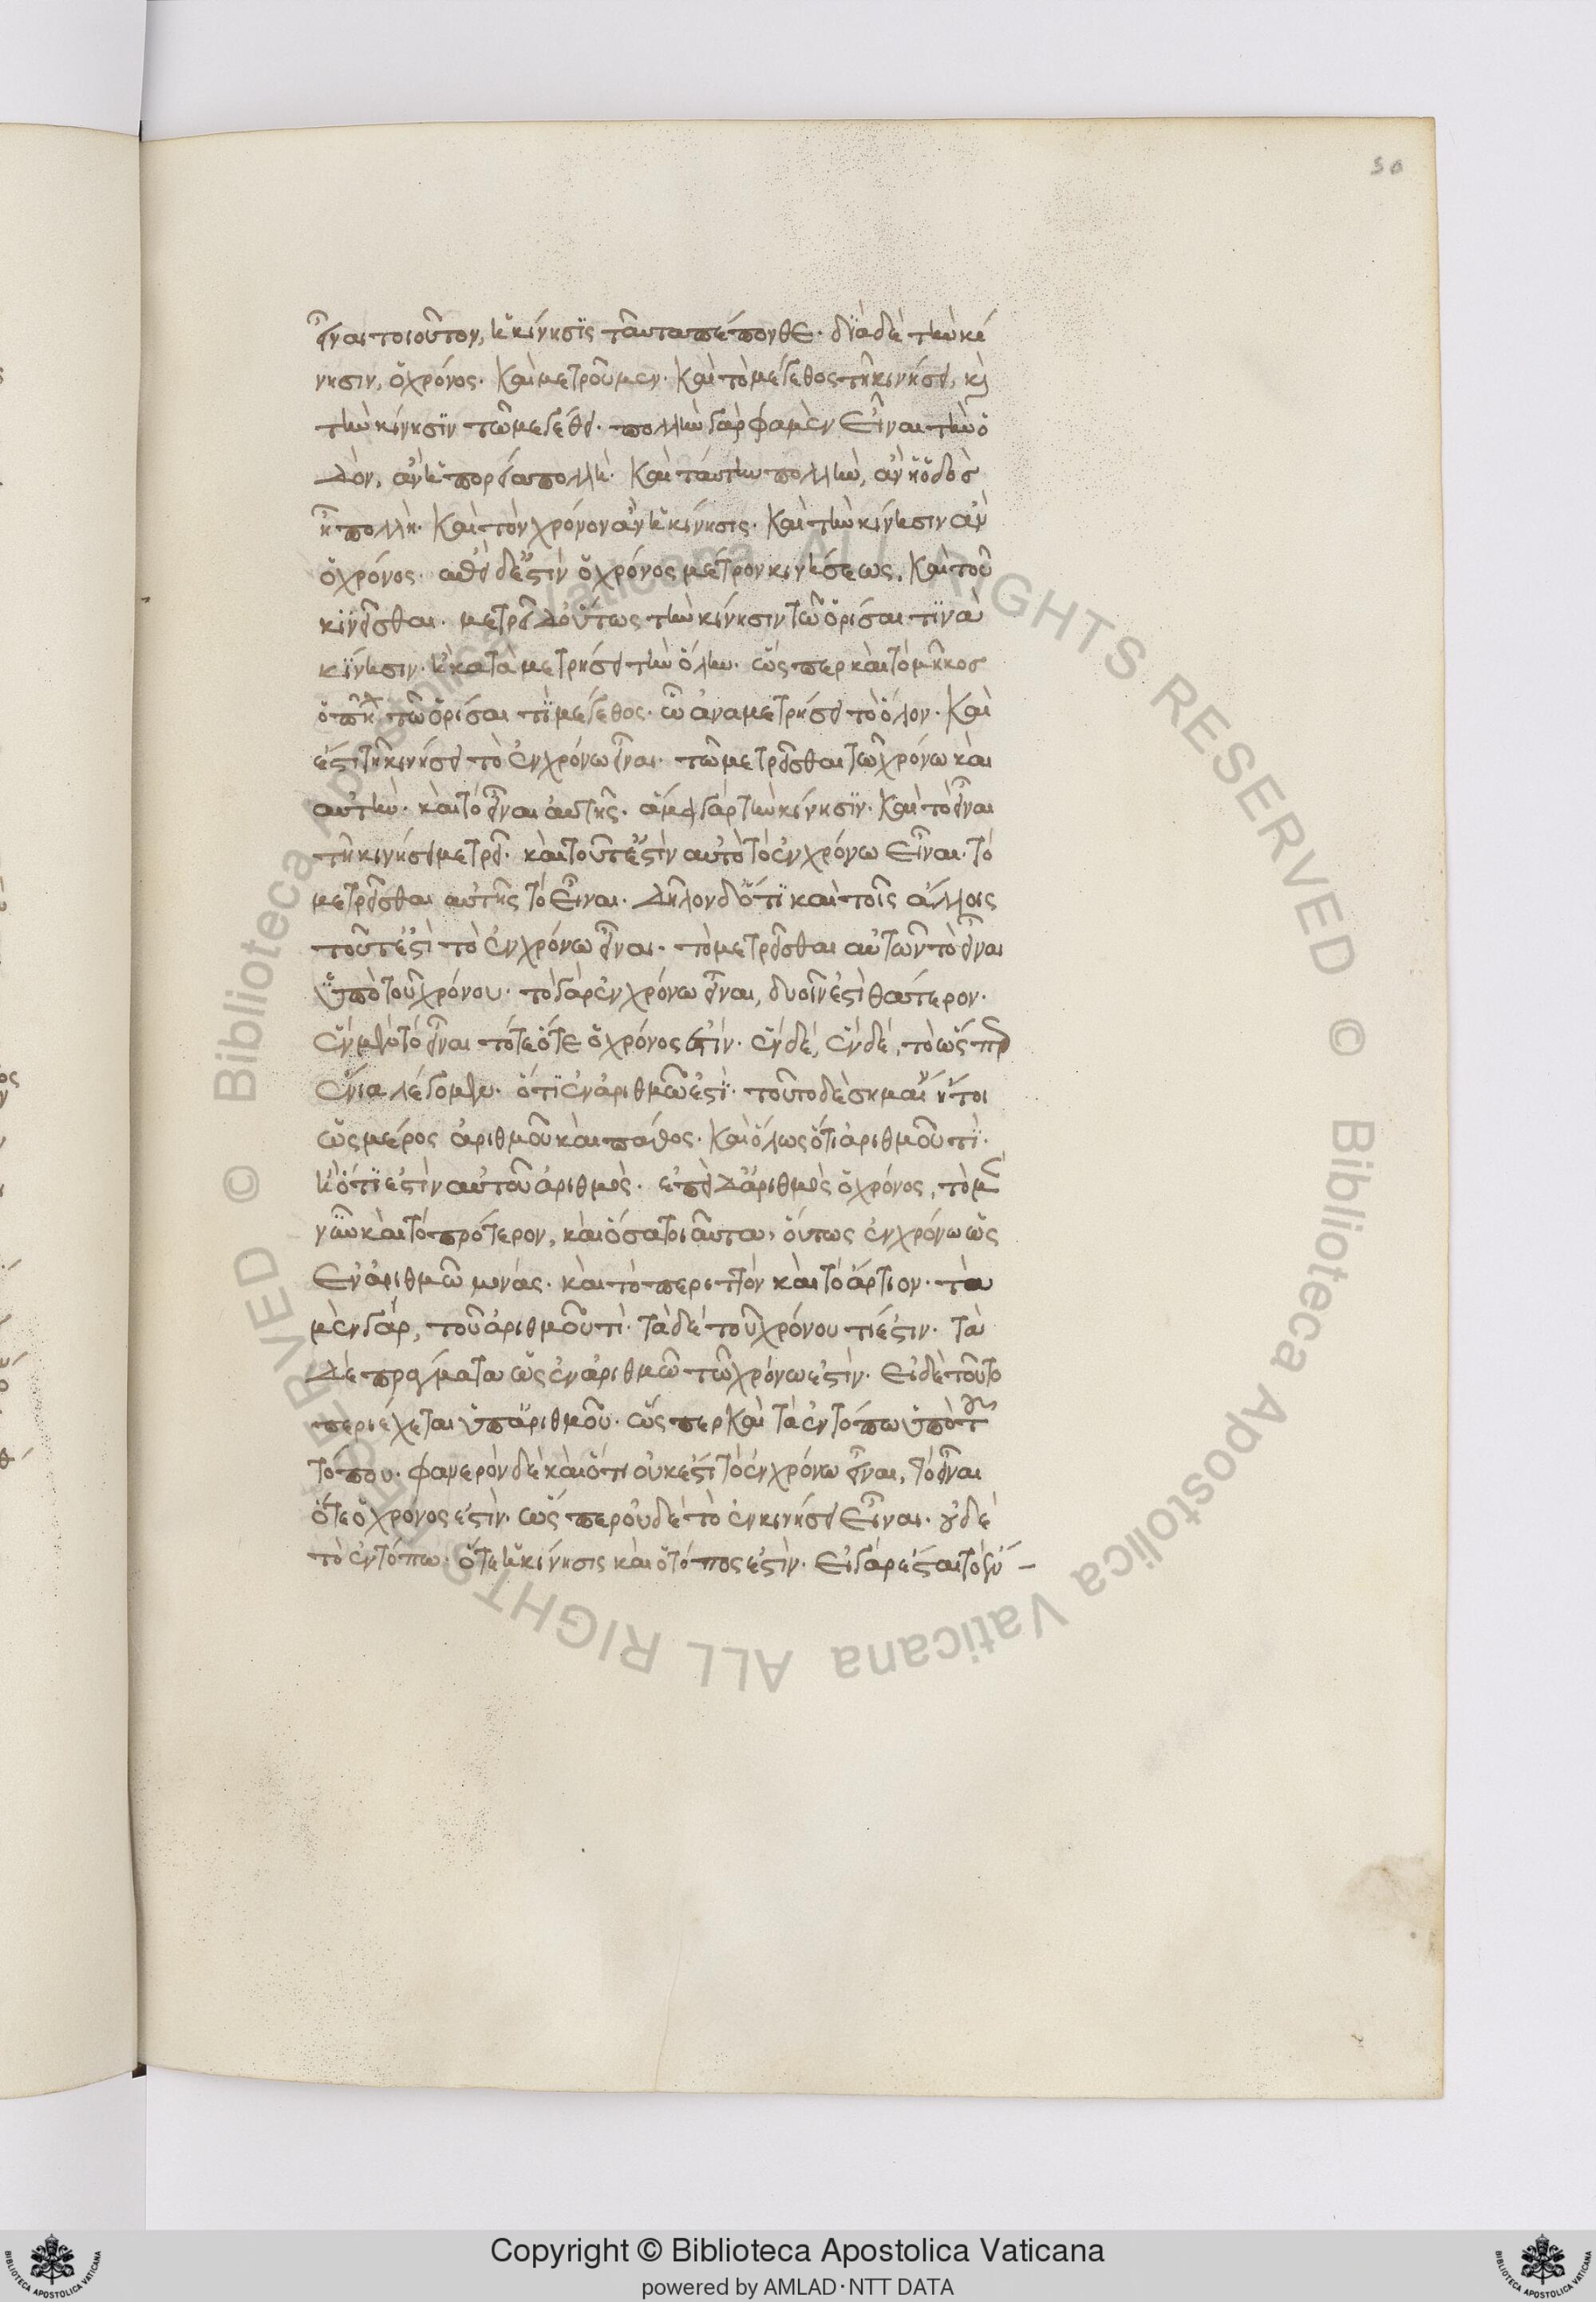 50
εἶναι τοιοῦτον, ἡ κίνησϊς ταῦτα πέπονθε· διὰ δὲ τὴν κί
νησιν, ὁ χρόνος· Καὶ μετροῦμεν· Καὶ τὸ μέγεθος τῆ κινήσει, κὶ
τὴν κίνησϊν τῶ μεγέθει· πολλὴν γὰρ φαμὲν εἶναι τὴν ὁ
δόν, ἂν ἡ πορεία πολλή· Καὶ ταύτην πολλὴν, ἂν ἡ ὁδὸσ
ἦ πολλὴ· Καὶ τὸν χρόνον ἂν ἡ κίνησις· Καὶ τὴν κίνησιν ἂν
ὁ χρόνος· ἐπεὶ δ' ἐστὶν ὁ χρόνος μέτρον κινήσεως, Καὶ τοῦ
κινεῖσθαι· μετρεῖ δ' οὕτως τὴν κίνησιν τῶ ὁρίσαι τϊνὰ
κίνησιν· ἣ καταμετρήσει τὴν ὅλην· ὥσπερ καὶ τὸ μῆκοσ
ὁ πῆχ τῶ ὁρίσαι τῒ μέγεθος· ὃ ἀναμετρήσει τὸ ὅλον· Καὶ
ἔστι τῆ κινήσει τὸ ἐν χρόνω εἶναι· τῶ μετρεῖσθαι τῶ χρόνω καὶ
αὐτὴν· καὶ τὸ εἶναι αὐτῆς· ἅμα γὰρ τὴν κίνησϊν· Καὶ τὸ εἶναι
τῆ κινήσει μετρεῖ· καὶ τοῦτ' ἔστὶν αὐτὸ τὸ ἐν χρόνω εἶναι· τὸ
μετρεῖσθαι αὐτῆς τὸ εἶναι· Δῆλον δ' ὅτϊ καὶ τοῖς ἄλλοις
τοῦτ' ἐστὶ τὸ ἐν χρόνω εἶναι· τὸ μετρεῖσθαι αὐτῶν τὸ εἶναι
ὑπὸ τοῦ χρόνου· τὸ γὰρ ἐν χρόνω εἶναι, δυοῖν ἐστὶ θάτερον·
ἓν μὲν τὸ εἶναι τότε ὅτε ὁ χρόνος ἐστίν· ἓν δὲ, ἓν δὲ, τὸ ὥσπερ
ἔνια λέγομεν· ὅτϊ ἐν ἀριθμῶ ἐστϊ· τοῦτο δὲ σημαίν ἤτοι
ὡς μέρος ἀριθμοῦ καὶ πάθος· Καὶ ὅλως ὅτι ἀριθμοῦ τὶ·
ἢ ὅτϊ ἐστὶν αὐτοῦ ἀριθμὸς· ἐπεὶ δ' ἀριθμὸς ὁ χρόνος, τὸ μὲν
νῦν καὶ τὸ πρότερον, καὶ ὅσα τοιαῦτα, οὕτως ἐν χρόνω ὡς
ἐν ἀριθμῶ μονάς· καὶ τὸ περιττὸν καὶ τὸ ἄρτιον· τὰ
μὲν γὰρ, τοῦ ἀριθμοῦ τὶ· τὰ δὲ τοῦ χρόνου τι ἐστιν· τὰ
Δὲ πράγματα ὡς ἐν ἀριθμῶ τῶ χρόνω ἐστὶν· εἰ δὲ τοῦτο
περιέχεται ὑπ' ἀριθμοῦ· ὥσπερ Καὶ τὰ ἐν τόπω ὑπὸ τοῦ
τόπου· φανερὸν δὲ καὶ ὅτι οὐκ ἔστι τὸ ἐν χρόνω εἶναι, τὸ εἶναι
ὅτε ὁ χρόνος ἐστὶν· ὥσπερ οὐδὲ τὸ ἐν κινήσει εἶναι· οὐδὲ
τὸ ἐν τόπω· ὅτε ἡ κίνησις καὶ ὁ τόπος ἐστὶν· εἰ γὰρ ἔσται τὸ ἔν
© Biblioteca Apostolica Vaticana ALL RIGHTS RESERVED © Biblioteca Apostolica Vaticana ALL RIGHTS RESERVED
Copyright © Biblioteca Apostolica Vaticana
powered by AMLAD·NTT DATA
BIBLIOTECA APOSTOLICA VATICANA
BIBLIOTECA APOSTOLICA VATICANA